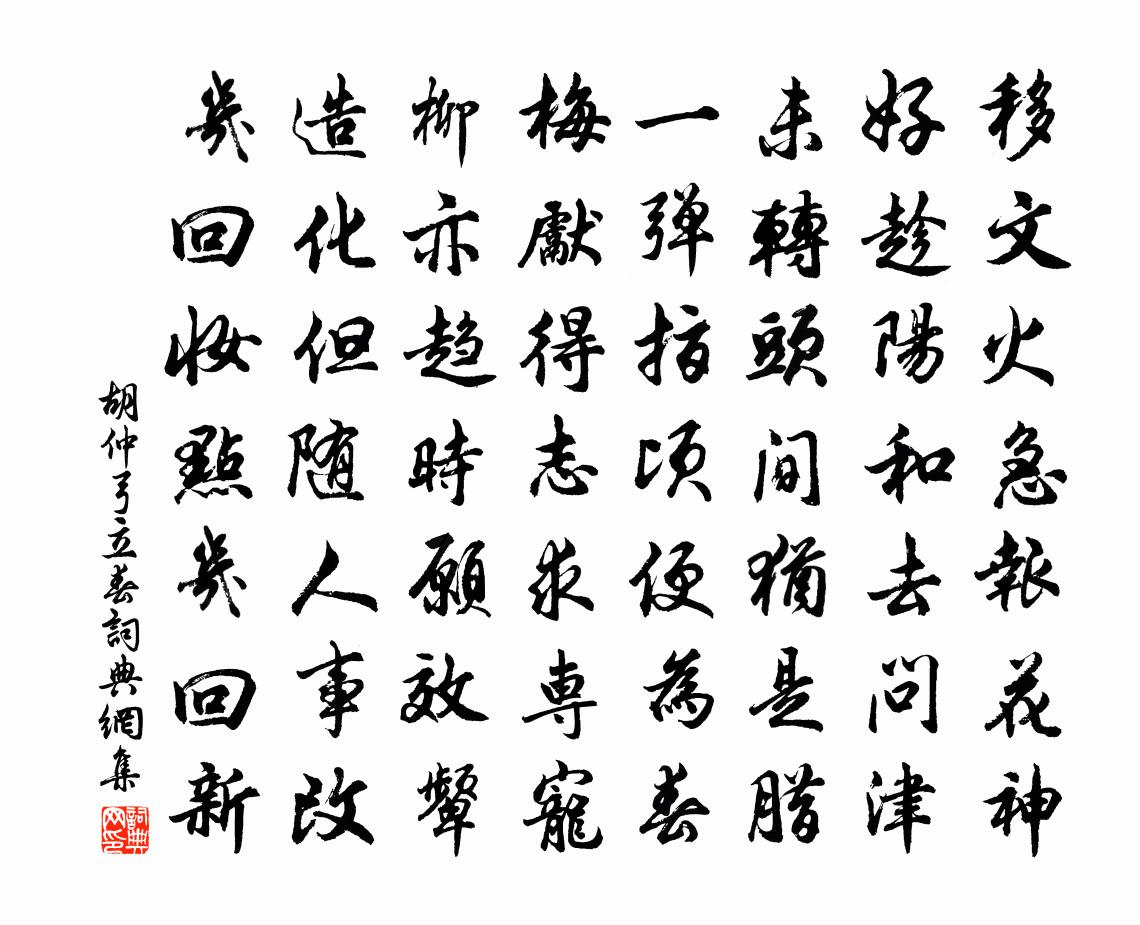 移文火急報花神
好趁陽和去問津
未轉頭間猶是腊
一弹指頃便為春
梅獻得志求専寵
柳亦趋時願效颦
造化但随人事改
幾回妝點幾回新
胡仲弓立春詞典網集
詞典网印